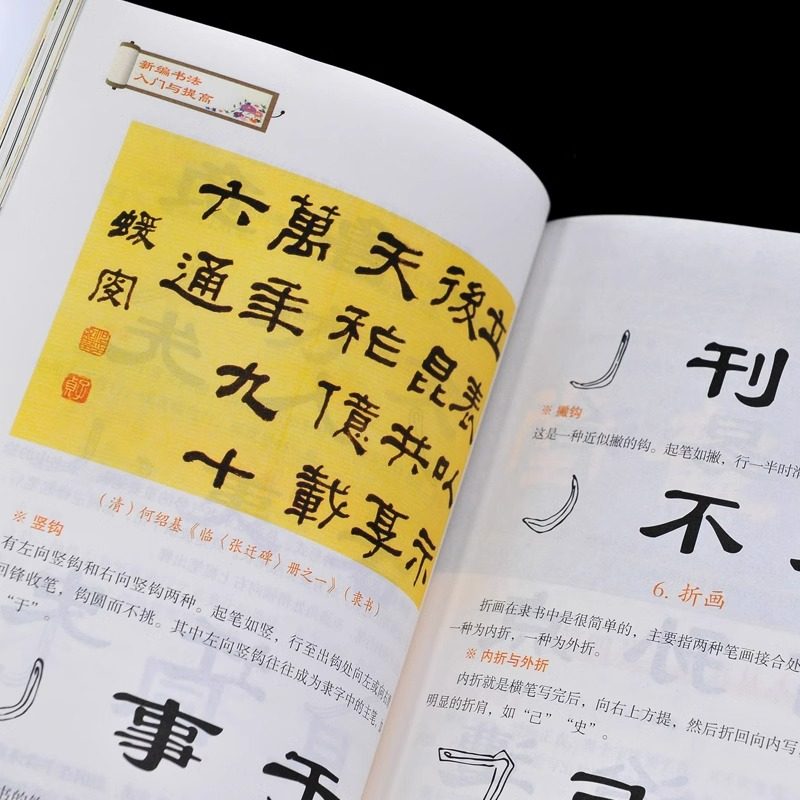 新编书法
入门与提高
立表以示
後昆共享
天祚億載
萬年九十
六通
蝯叟
（清）何绍基《临〈张迁碑〉册之一》（隶书）
※ 竖钩
有左向竖钩和右向竖钩两种。起笔如竖，行至出钩处向左或向右
回锋收笔，钩圆而不挑。其中左向竖钩往往成为隶字中的主笔，
“于”。
事
于
刊
※ 撇钩
这是一种近似撇的钩。起笔如撇，行一半时滑
不
6. 折画
折画在隶书中是很简单的，主要指两种笔画接合处
一种为内折，一种为外折。
※ 内折与外折
内折就是横笔写完后，向右上方提，然后折回向内写
明显的折肩，如“己”“史”。
己